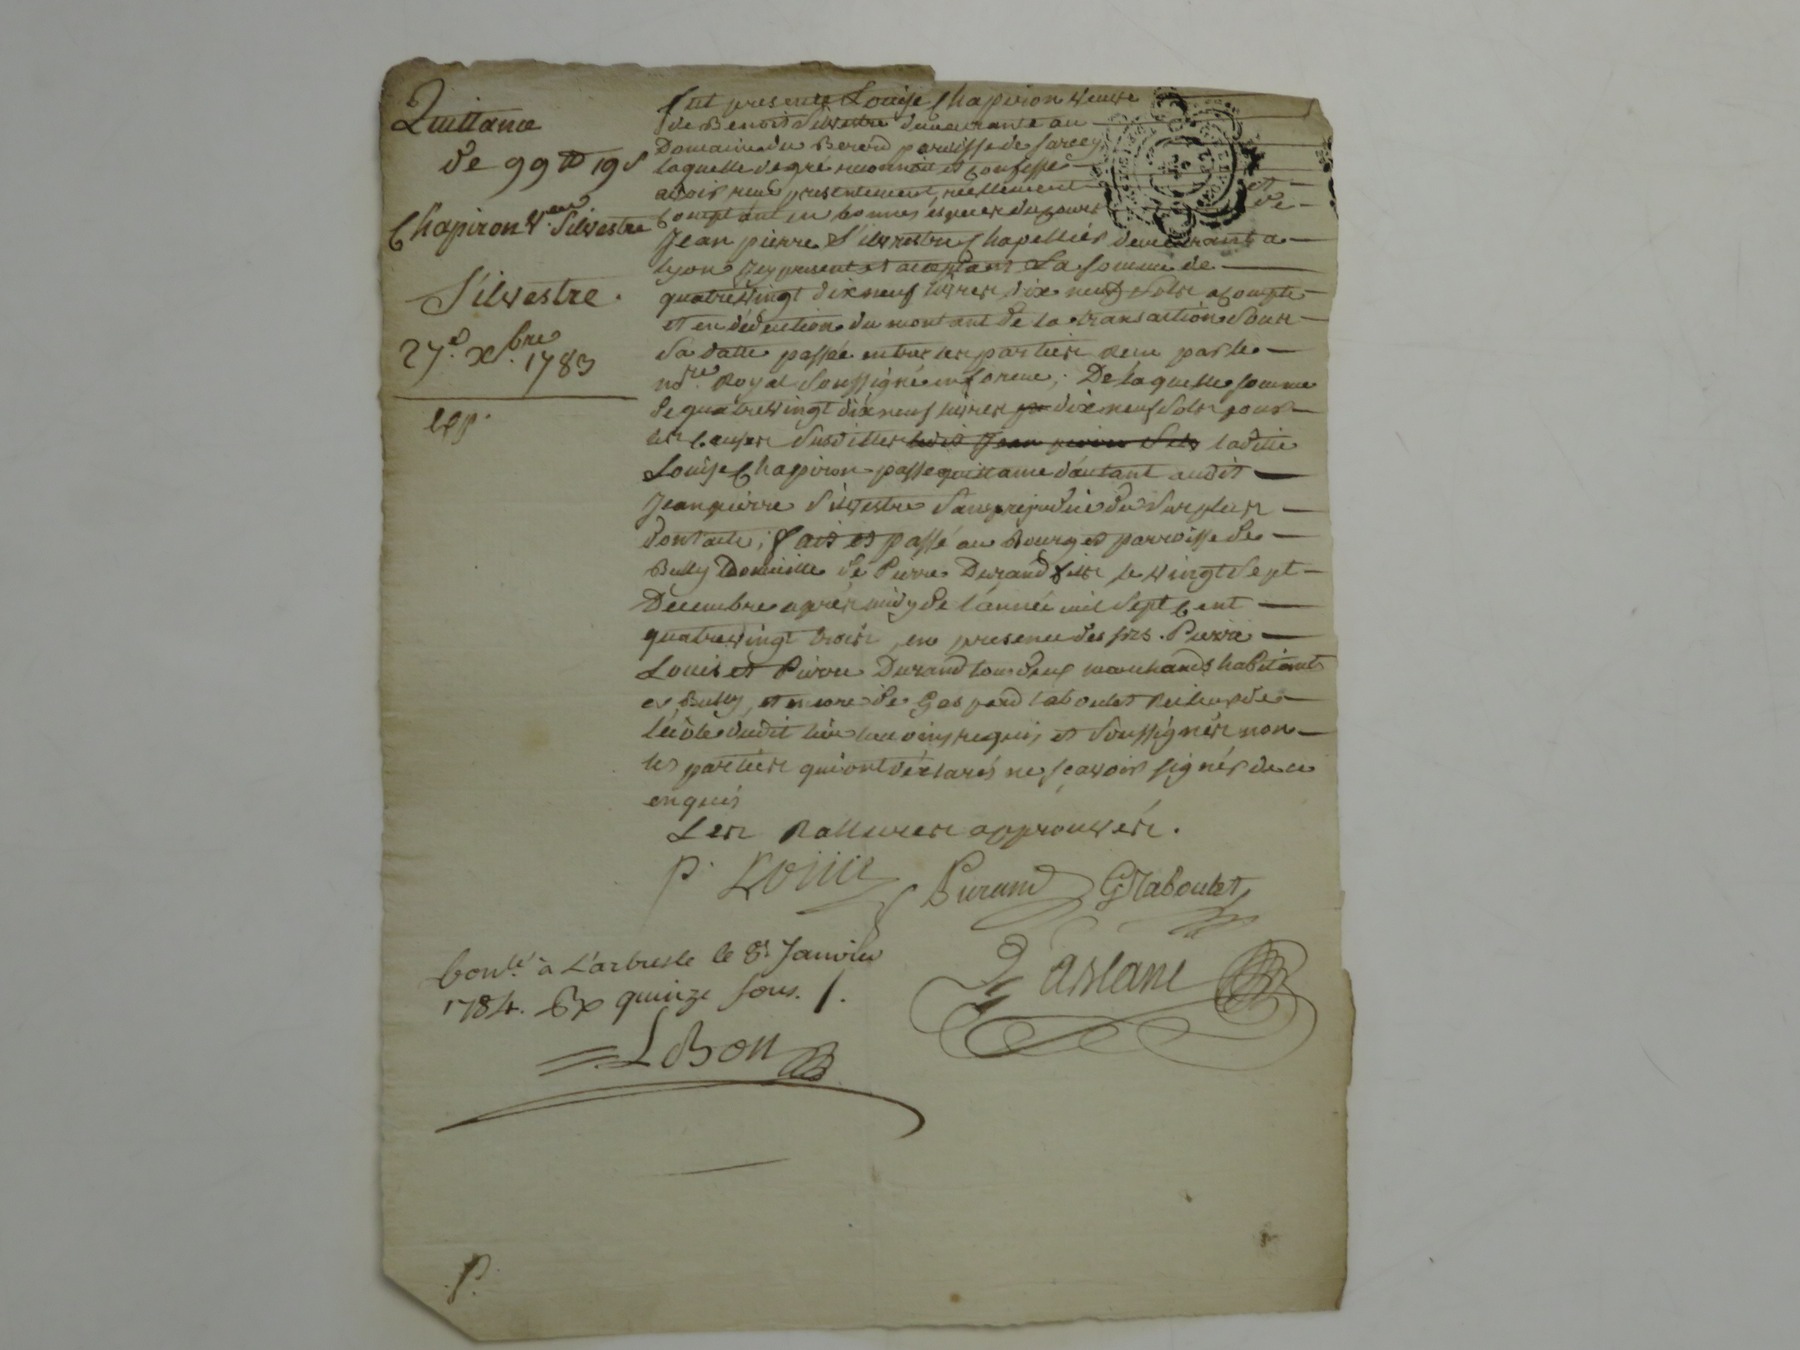 Quittance
de 99 ₶ 19 s
Chapiron Ve. Silvestre
Silvestre.
27e. xbre. 1783
exp.
fut presente Louise Chapiron veuve
de Benois Silvestre demeurante au
Domaine du Berod parroisse de Sarcey
laquelle de gré reconnoit et confesse
avoir reçu presentement, réellement et
comptant en bonnes éspeces du cours de
Jean pierre Silvestre Chapellier demeurant a
Lyon icy present et acceptant La somme de
quatrevingt dixneuf livres dix neuf sols acompte
et en déduction du montant de la transaction sous
sa datte passée entre les parties reçue par le
nore. Royal soussigné en forme; De laquelle somme
de quatrevingt dixneuf livres dixneuf sols pour
les causes susdittes ledit Jean pierre Silv laditte
Louise Chapiron passe quittance d'autant audit
Jean pierre Silvestre sans prejudice du surplus
dont acte; fait et passé au Bourg et parroisse de
Bully Domicille de Pierre Durand fils le vingt sept
Decembre après midy de l'année mil sept cent
quatrevingt trois, en presence des srs. Pierre
Louis et Pierre Durand tous deux marchands habitants
a Bully, et encore de Gaspard Taboulet Recteur de
l'école dudit lieu temoins requis et soussignés non
les parties qui ont déclarés ne sçavoir signés de ce
enquis
Les Ratures approuvées.
P. Louis Durand G Taboulet
Conlé à L'arbresle le 8 Janvier
1784. Rx quinze sous.
LeBon
P.